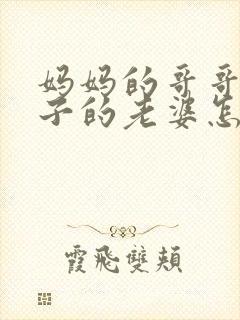 妈妈的哥哥
子的老婆怎
霞飛雙頰